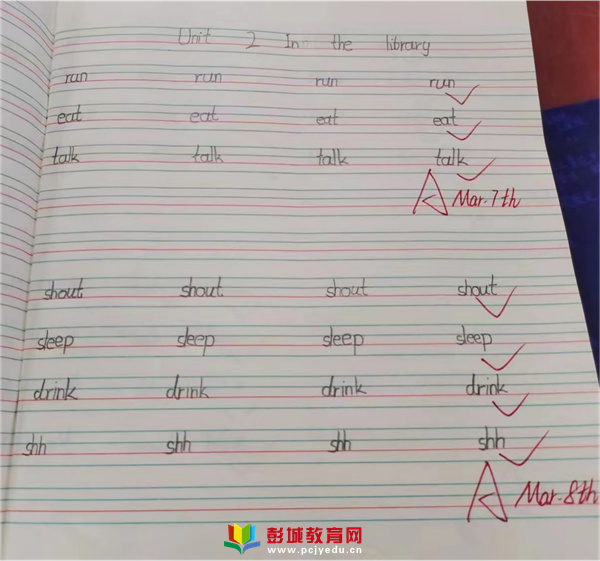 Unit 2 In the library
run run run run
eat eat eat eat
talk talk talk talk
A Mar.7th
shout shout shout shout
sleep sleep sleep sleep
drink drink drink drink
shh shh shh shh
A Mar.8th
彭城教育网
www.pcjyedu.cn